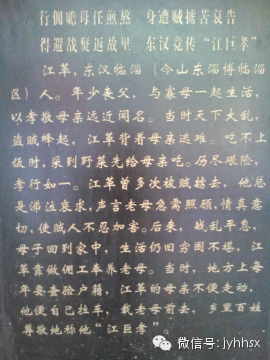 行佣赡母任煎熬 身遭贼掳苦哀告
得避战燹返故里 东汉竞传“江巨孝”
江革,东汉临淄(今山东淄博临淄
区)人。年少丧父,与寡母一起生活,
以孝敬母亲远近闻名。当时天下大乱,
盗贼峰起,江革背着母亲逃难。吃不上
饭时,采到野菜先给母亲吃。历尽艰险,
孝行如一。江革曾多次被贼掳去,他总
是涕泣哀求,声言老母急需照顾,情真意
切,使贼人不忍加害。后来,战乱平息,
母子回到家中,生活仍旧穷困不堪,江
革靠做佣工奉养老母。当时,地方上每
年要查验户籍,江革的母亲不便走动,
他便自己拉车,载老母前去,乡里百姓
尊敬地称他“江巨孝”。
微信号:jyhhsx